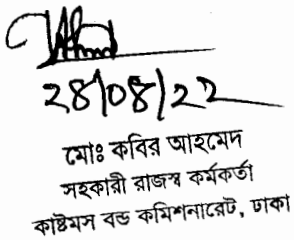 ২৪/০৮/২২
মোঃ কবির আহমেদ
সহকারী রাজস্ব কর্মকর্তা
কাষ্টমস বন্ড কমিশনারেট, ঢাকা